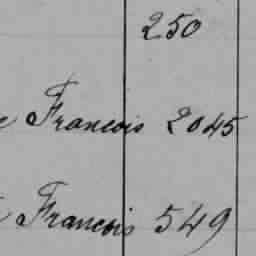 250
Francois 2045
Francois 549